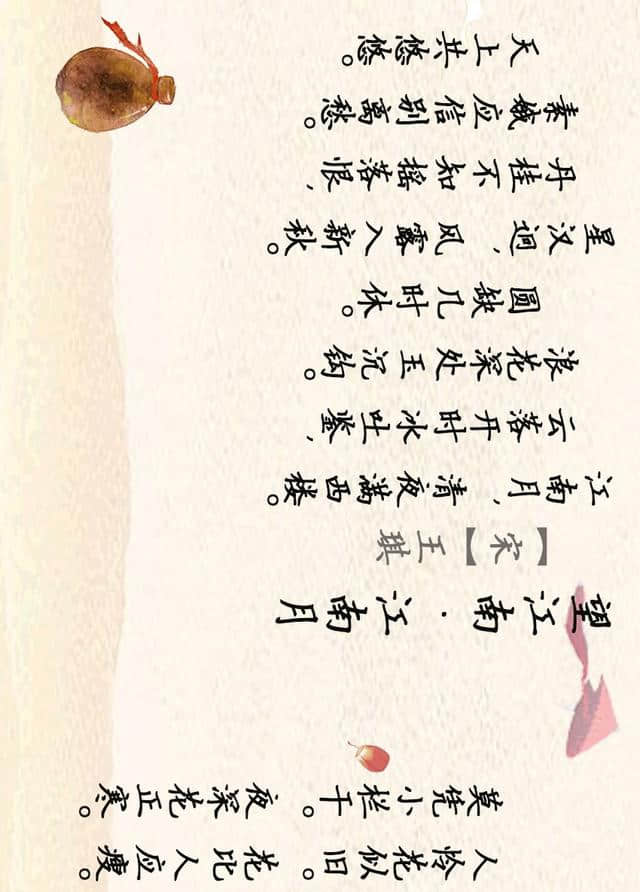 人怜花似旧。花比人应瘦。
莫凭小栏干。夜深花正寒。
望江南·江南月
【宋】王琪
江南月，清夜满西楼。
云落开时冰吐鉴，
浪花深处玉沉钩。
圆缺几时休。
星汉迥，风露入新秋。
丹桂不知摇落恨，
素娥应信别离愁。
天上共悠悠。